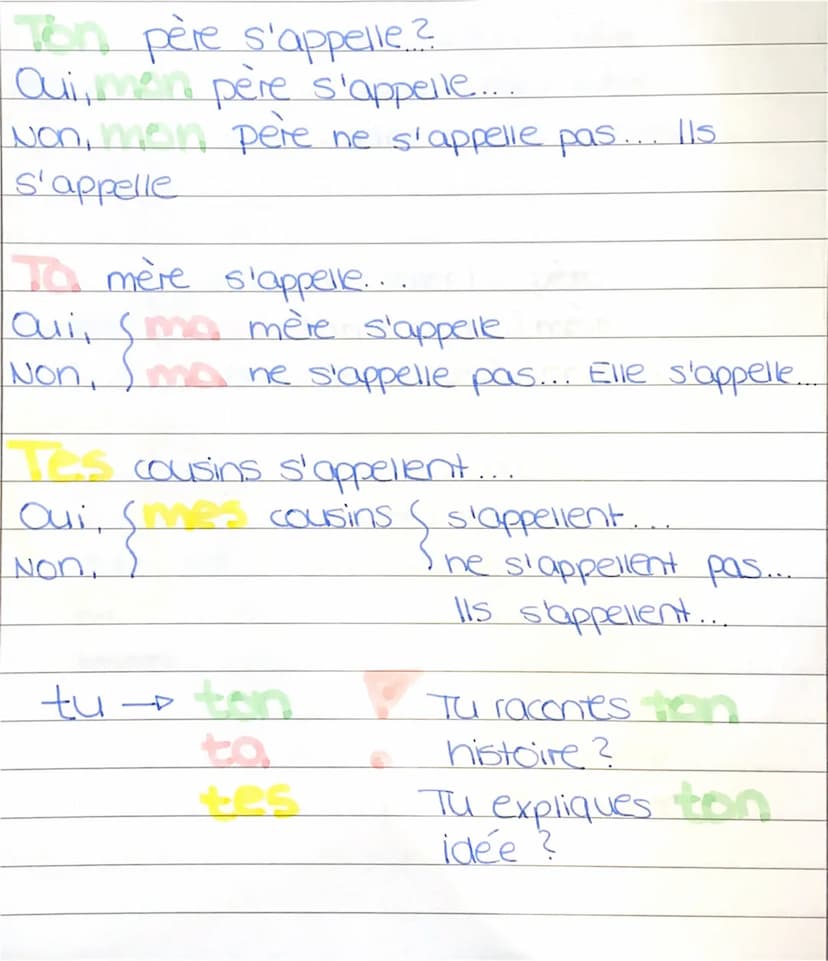 Ton père s'appelle?
Oui, mon père s'appelle...
Non, mon père ne s'appelle pas... Ils
s'appelle
Ta mère s'appelle...
Oui, { ma mère s'appelle
Non, ma ne s'appelle pas... Elle s'appelle...
Tes cousins s'appellent...
Oui, { mes cousins { s'appellent...
Non, ne s'appellent pas...
Ils s'appellent...
tu → ton ! Tu racontes ton
ta histoire?
tes Tu expliques ton
idée?